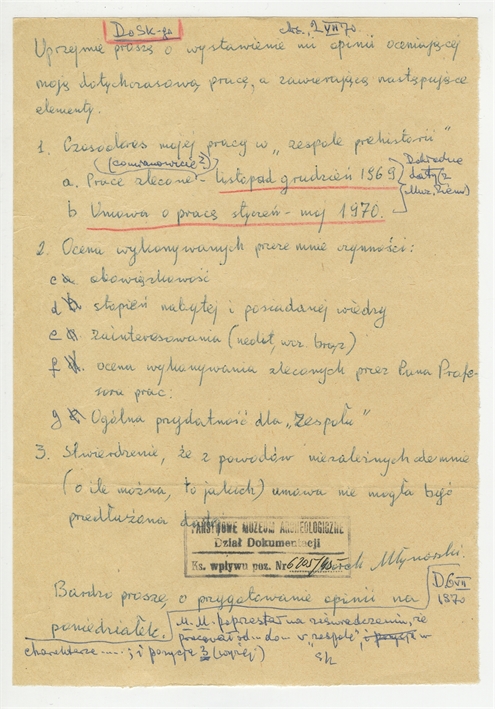 Do SK-go
2 VII 70
Uprzejmie proszę o wystawienie mi opinii oceniającej
moją dotychczasową pracę, a zawierającą następujące
elementy.
1. Czasokres mojej pracy w „zespole prehistorii”
a. Prace zlecone - listopad grudzień 1969
Dokładne
daty (z
Muz. Ziemi)
b Umowa o pracę styczeń - maj 1970.
2. Ocena wykonywanych przeze mnie czynności:
c obowiązkowość
d stopień nabytej i posiadanej wiedzy
e zainteresowania (neolit, wcz. brąz)
f ocena wykonywania zleconych przez Pana Profe-
sora prac:
g Ogólna przydatność dla „Zespołu”
3. Stwierdzenie, że z powodów niezależnych ode mnie
(o ile można, to jakich) umowa nie mogła być
przedłużana
PAŃSTWOWE MUZEUM ARCHEOLOGICZNE
Dział Dokumentacji
Ks. wpływu poz. Nr
Młynarski.
Bardzo proszę, o przygotowanie opinii na
poniedziałek.
D 6 VII
1970
M. M. poprzestał na zaświadczeniu, że
pracował od do w „zespole”, w
charakterze ......; i pozycje 3 (wyżej)
SK